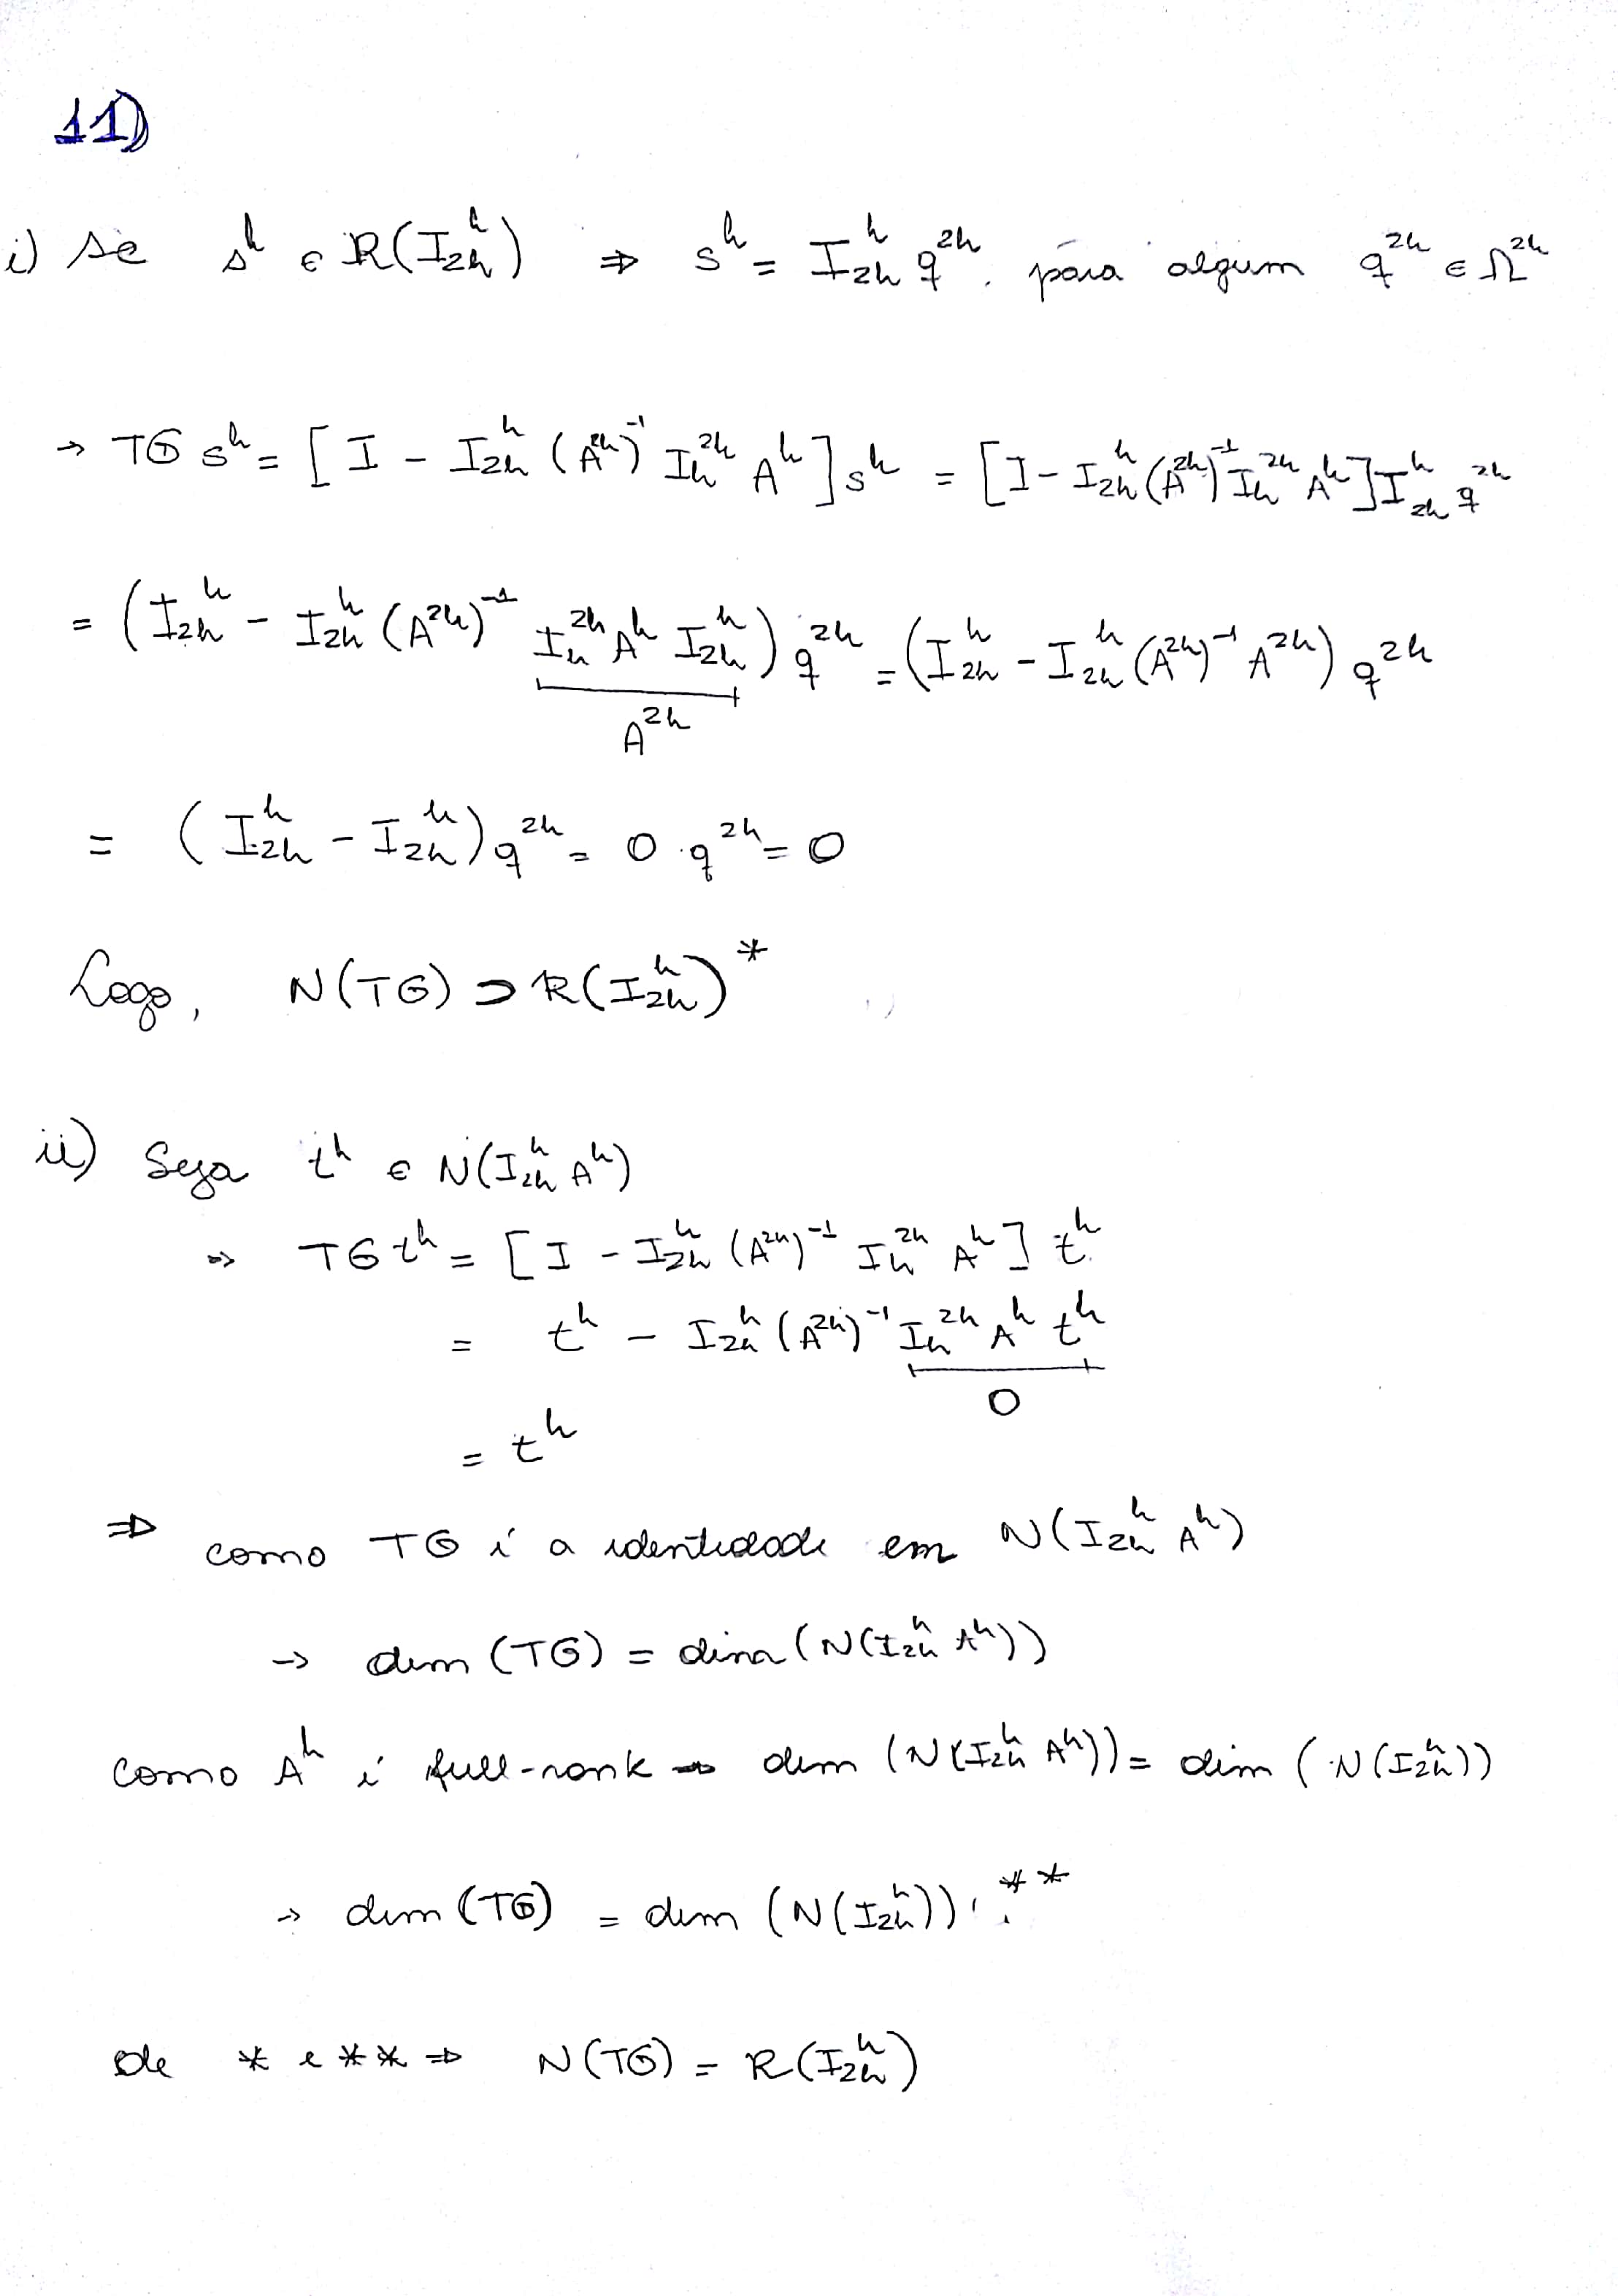 11)
i) Se s^h ∈ R(I_{2h}^h) ⇒ s^h = I_{2h}^h q^{2h}, para algum q^{2h} ∈ Ω^{2h}
→ TG s^h = [I - I_{2h}^h (A^{2h})^{-1} I_h^{2h} A^h] s^h = [I - I_{2h}^h (A^{2h})^{-1} I_h^{2h} A^h] I_{2h}^h q^{2h}
= (I_{2h}^h - I_{2h}^h (A^{2h})^{-1} I_h^{2h} A^h I_{2h}^h) q^{2h} = (I_{2h}^h - I_{2h}^h (A^{2h})^{-1} A^{2h}) q^{2h}
A^{2h}
= (I_{2h}^h - I_{2h}^h) q^{2h} = 0 · q^{2h} = 0
Logo, N(TG) ⊃ R(I_{2h}^h) *
ii) Seja t^h ∈ N(I_{2h}^h A^h)
⇒ TG t^h = [I - I_{2h}^h (A^{2h})^{-1} I_h^{2h} A^h] t^h
= t^h - I_{2h}^h (A^{2h})^{-1} I_h^{2h} A^h t^h
0
= t^h
⇒ como TG é a identidade em N(I_{2h}^h A^h)
→ dim (TG) = dim (N(I_{2h}^h A^h))
como A^h é full-rank → dim (N(I_{2h}^h A^h)) = dim (N(I_{2h}^h))
→ dim (TG) = dim (N(I_{2h}^h)). **
de * e ** ⇒ N(TG) = R(I_{2h}^h)